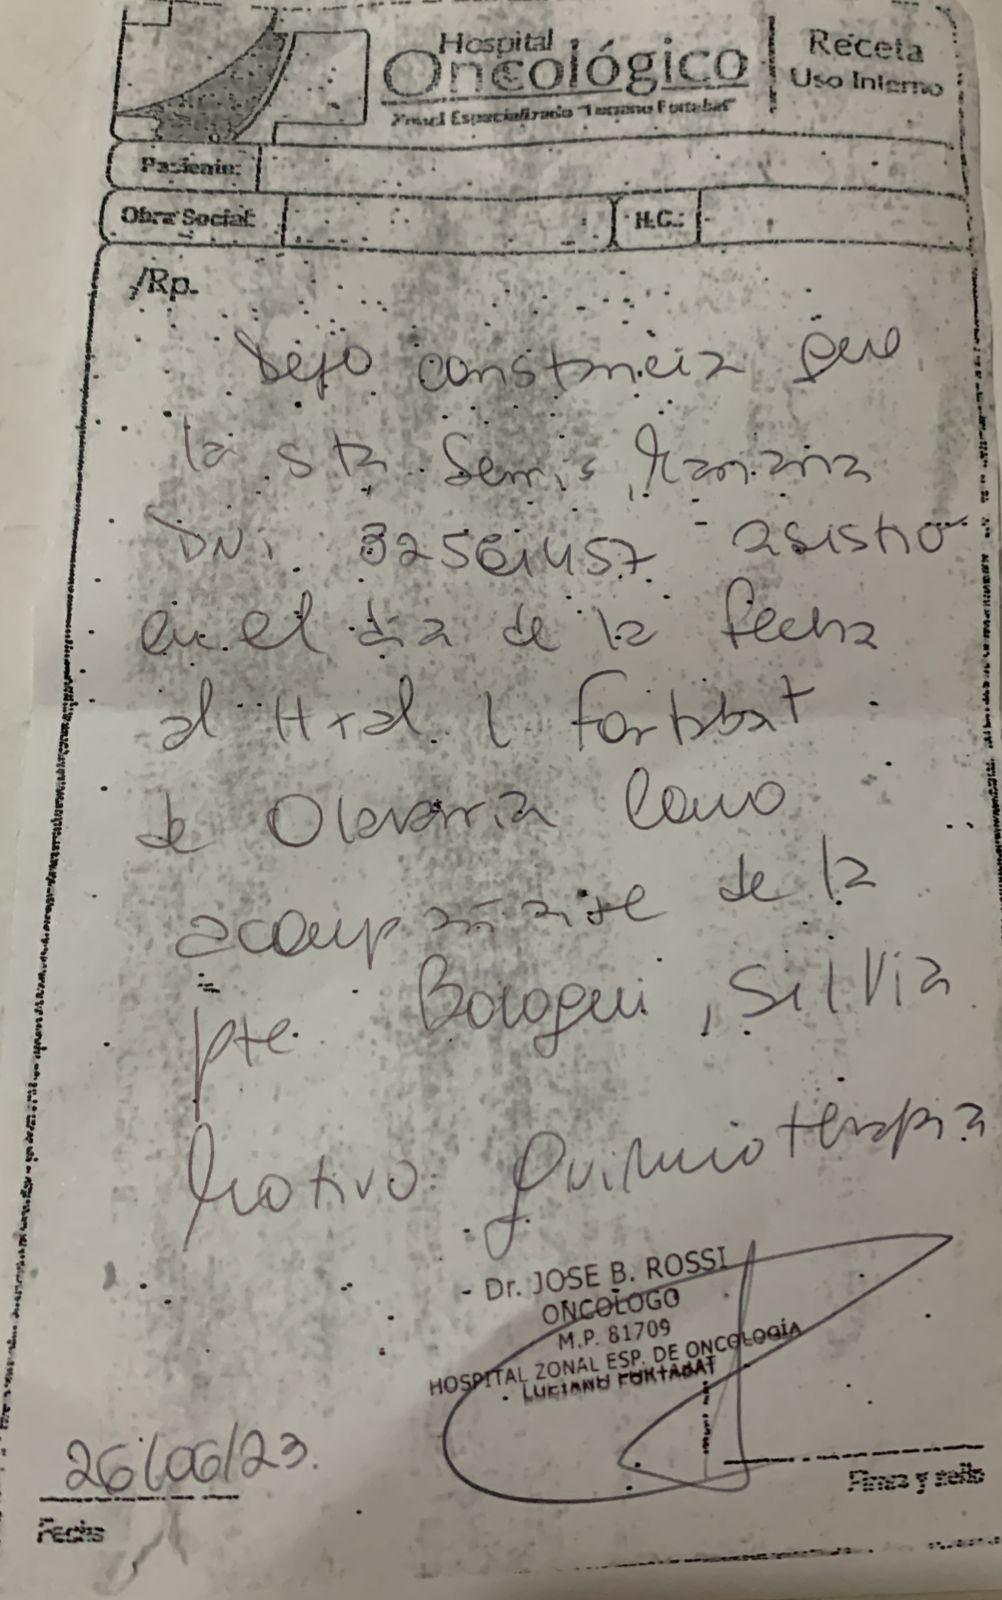 Hospital
Oncológico
Zonal Especializado "Luciano Fortabat"
Receta
Uso Interno
Paciente:
Obra Social:
H.C.:
/Rp.
Dejo constancia que
la sta Semis, Mariana
DNI 32561457 asistió
en el día de la fecha
al Htal L Fortabat
de Olavarria como
acompañante de la
pte. , Silvia
Motivo: Quimioterapia
Dr. JOSE B. ROSSI
ONCOLOGO
M.P. 81709
HOSPITAL ZONAL ESP. DE ONCOLOGÍA
LUCIANO FORTABAT
26/06/23.
Fecha
Firma y sello